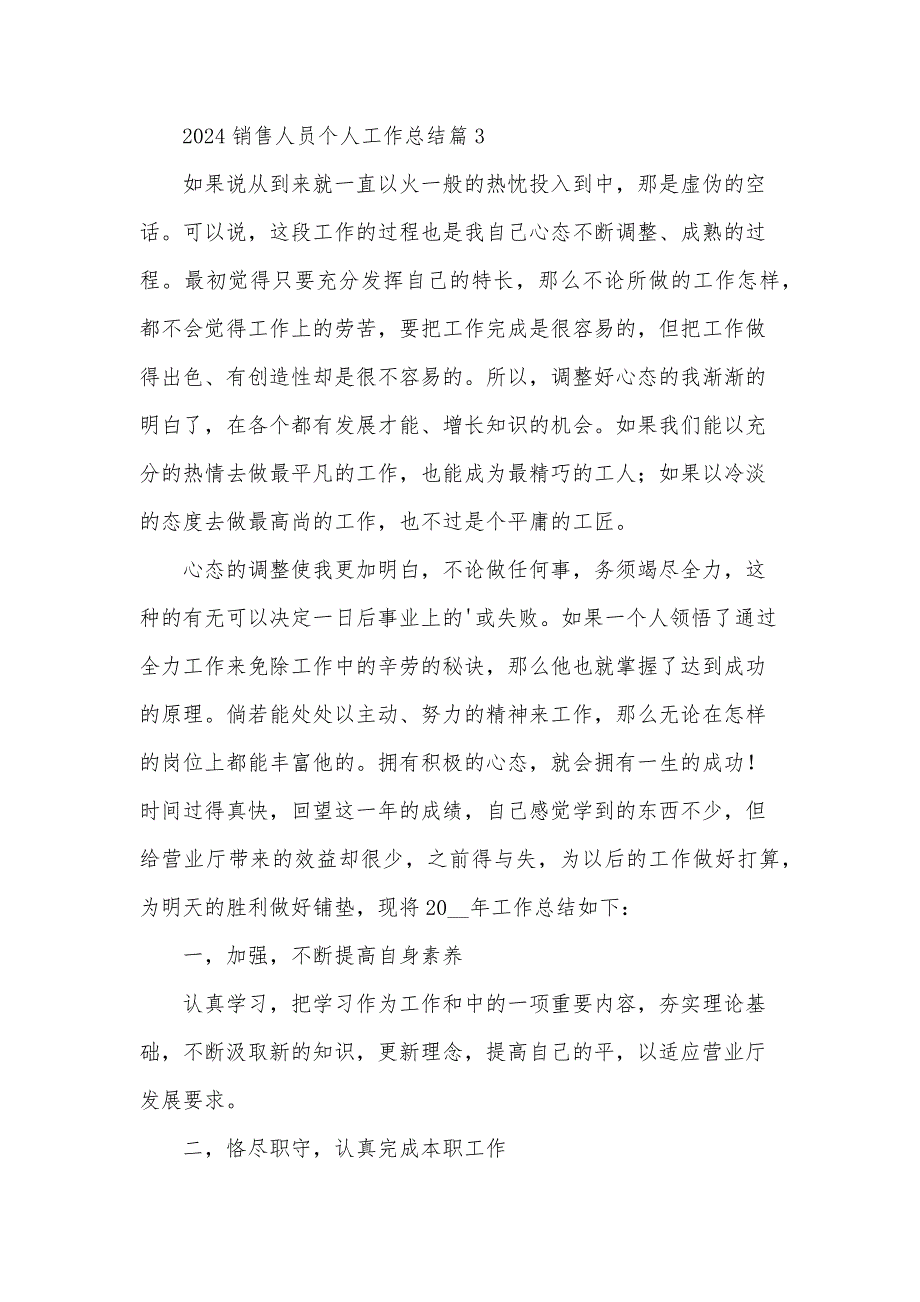 2024 销售人员个人工作总结篇 3
如果说从到来就一直以火一般的热忱投入到中，那是虚伪的空
话。可以说，这段工作的过程也是我自己心态不断调整、成熟的过
程。最初觉得只要充分发挥自己的特长，那么不论所做的工作怎样，
都不会觉得工作上的劳苦，要把工作完成是很容易的，但把工作做
得出色、有创造性却是很不容易的。所以，调整好心态的我渐渐的
明白了，在各个都有发展才能、增长知识的机会。如果我们能以充
分的热情去做最平凡的工作，也能成为最精巧的工人；如果以冷淡
的态度去做最高尚的工作，也不过是个平庸的工匠。
心态的调整使我更加明白，不论做任何事，务须竭尽全力，这
种的有无可以决定一日后事业上的'或失败。如果一个人领悟了通过
全力工作来免除工作中的辛劳的秘诀，那么他也就掌握了达到成功
的原理。倘若能处处以主动、努力的精神来工作，那么无论在怎样
的岗位上都能丰富他的。拥有积极的心态，就会拥有一生的成功！
时间过得真快，回望这一年的成绩，自己感觉学到的东西不少，但
给营业厅带来的效益却很少，之前得与失，为以后的工作做好打算，
为明天的胜利做好铺垫，现将 20__年工作总结如下：
一，加强，不断提高自身素养
认真学习，把学习作为工作和中的一项重要内容，夯实理论基
础，不断汲取新的知识，更新理念，提高自己的平，以适应营业厅
发展要求。
二，恪尽职守，认真完成本职工作